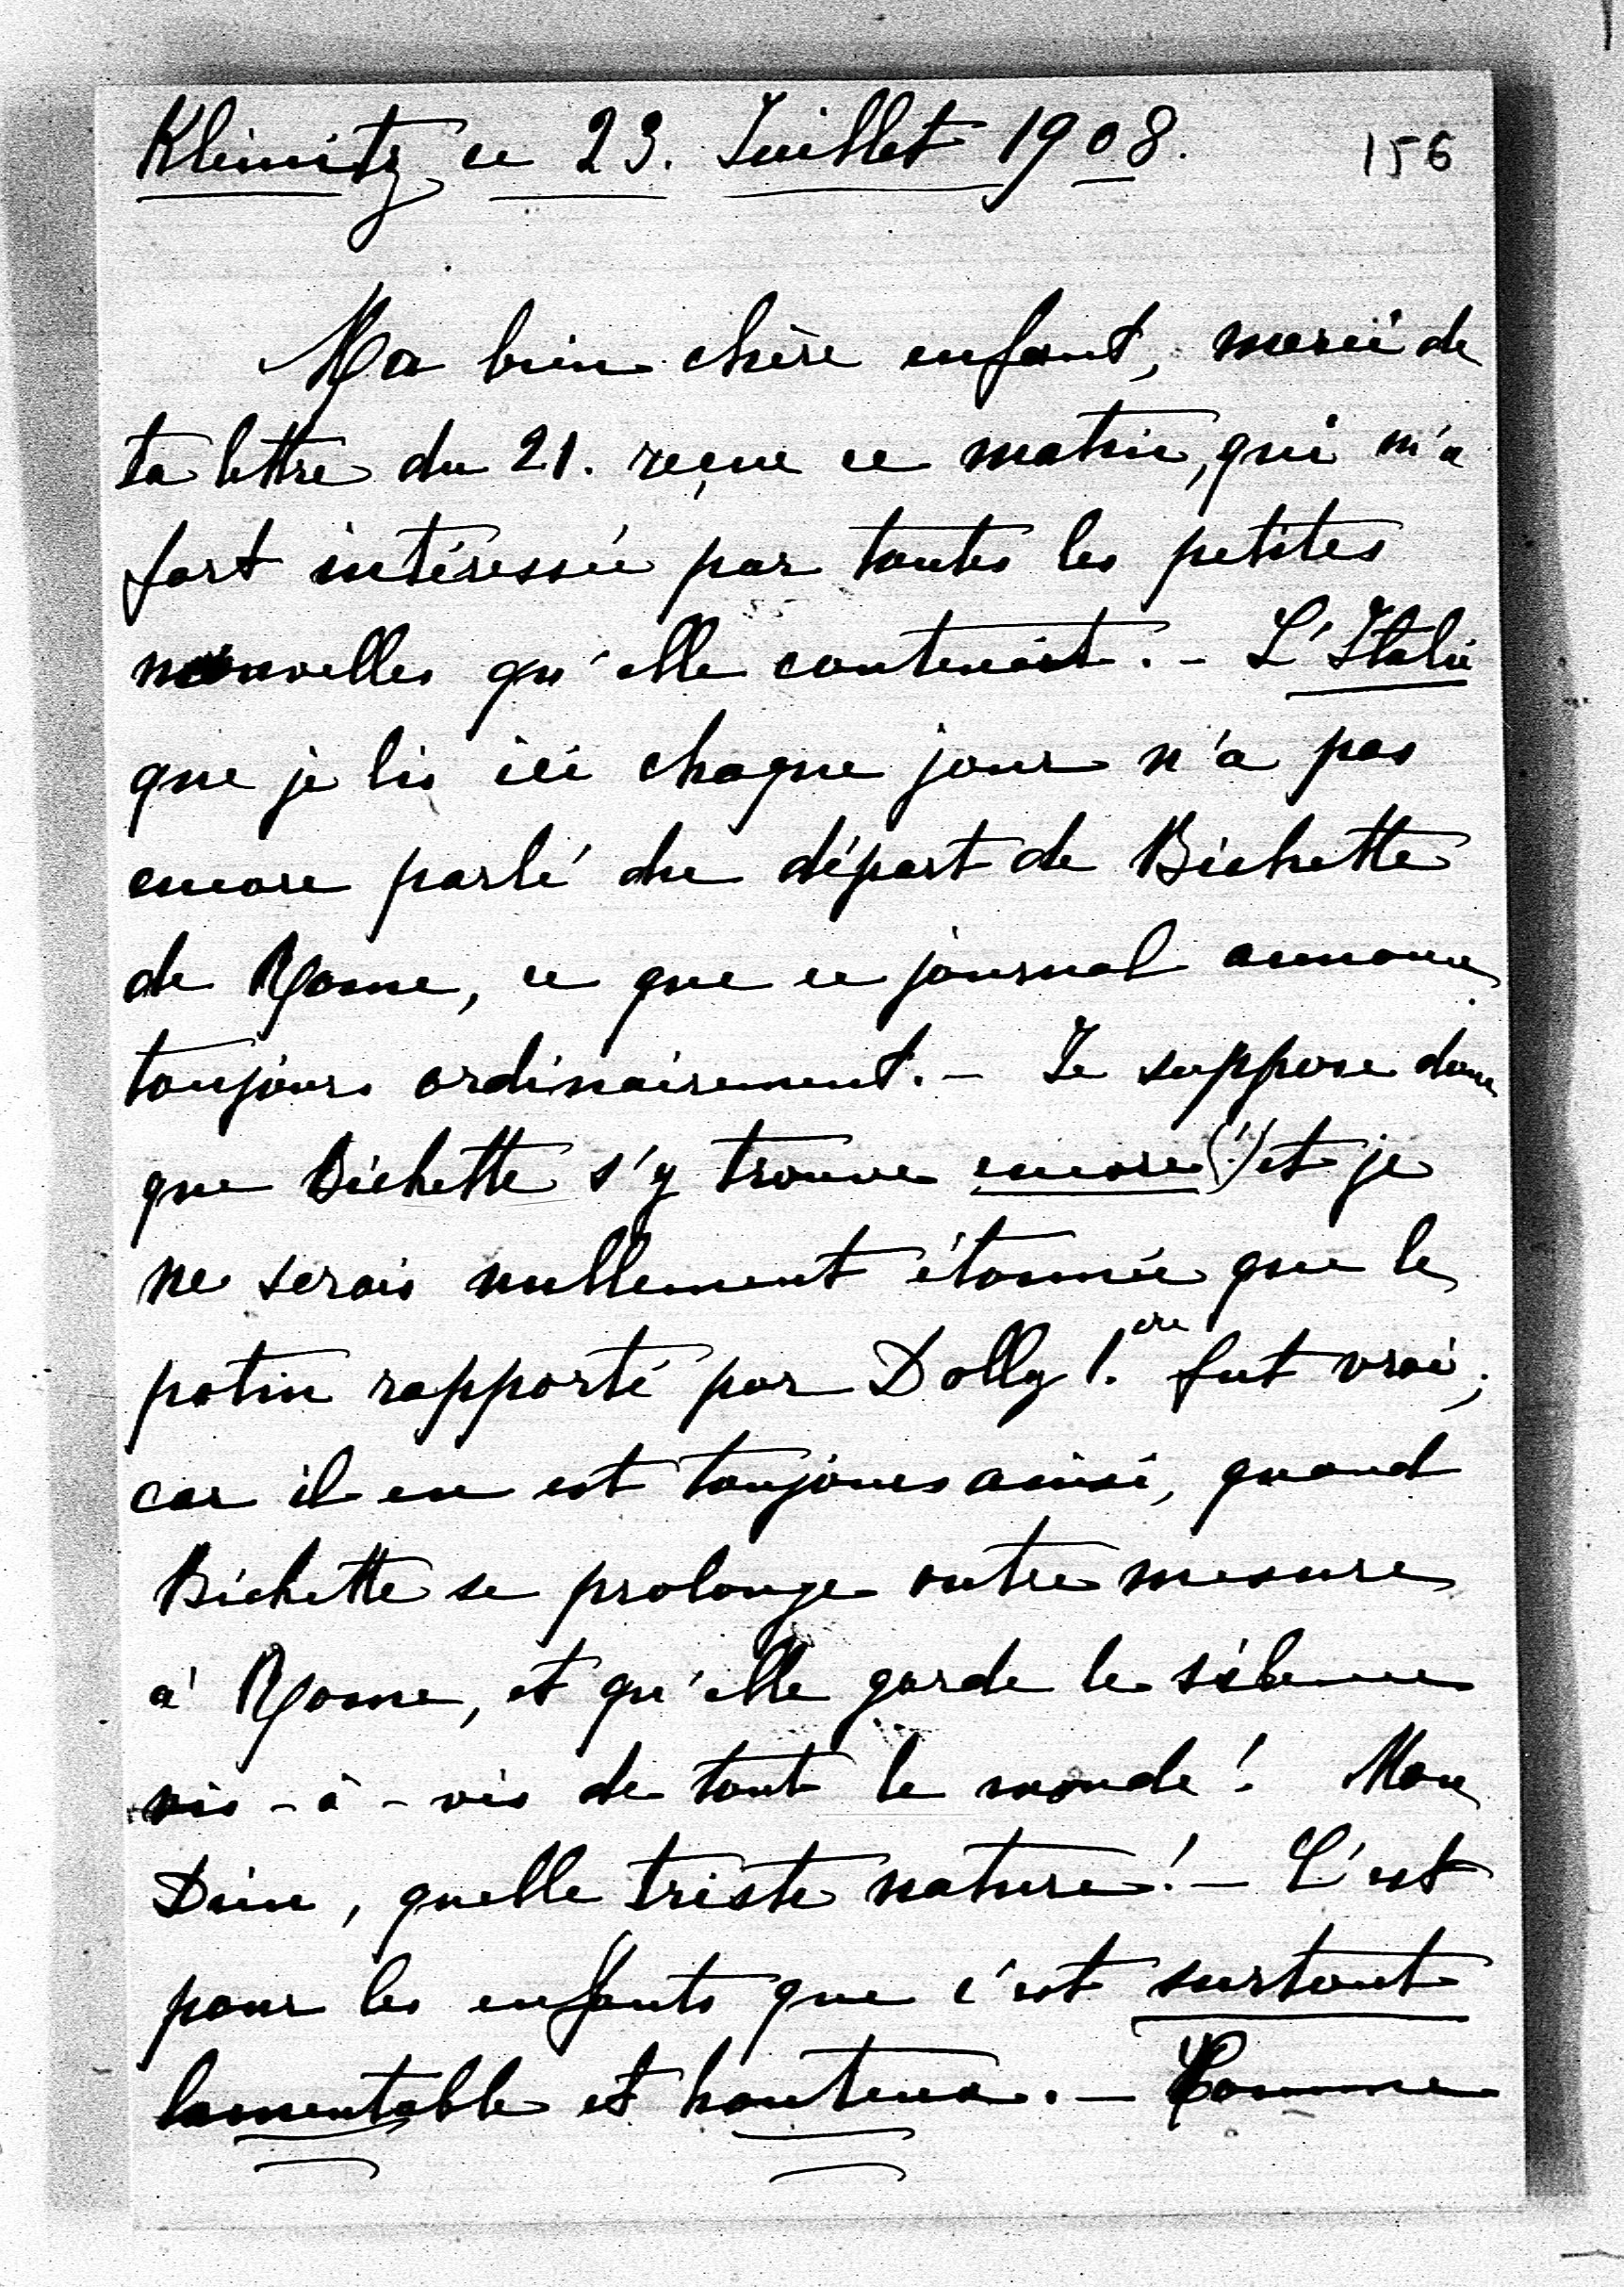 Klemitz, ce 23. Juillet 1908.
156
Ma bien chère enfant, merci de
ta lettre du 21. reçue ce matin, qui m'a
fort intéressée par toutes les petites
nouvelles qu'elle contenait. - L'Italie
que je lis ici chaque jour n'a pas
encore parlé du départ de Bichette
de Rome, ce que ce journal annonce
toujours ordinairement. - Je suppose donc
que Bichette s'y trouve encore (!) et je
ne serais nullement étonnée que le
potin rapporté par Dolly 1.ère fut vrai;
car il en est toujours ainsi, quand
Bichette se prolonge outre mesure
à Rome, et qu'elle garde le silence
vis-à-vis de tout le monde! Mon
Dieu, quelle triste nature! - C'est
pour les enfants que c'est surtout
lamentable et honteux. - Comme